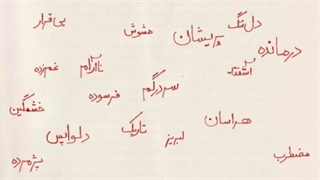 بی‌قرار
مشوش
دل‌تنگ
پریشان
درمانده
غم‌زده
ناآرام
آشفته
سردرگم
فرسوده
خشمگین
هراسان
تاریک
لبریز
دلواپس
پژمرده
مضطرب